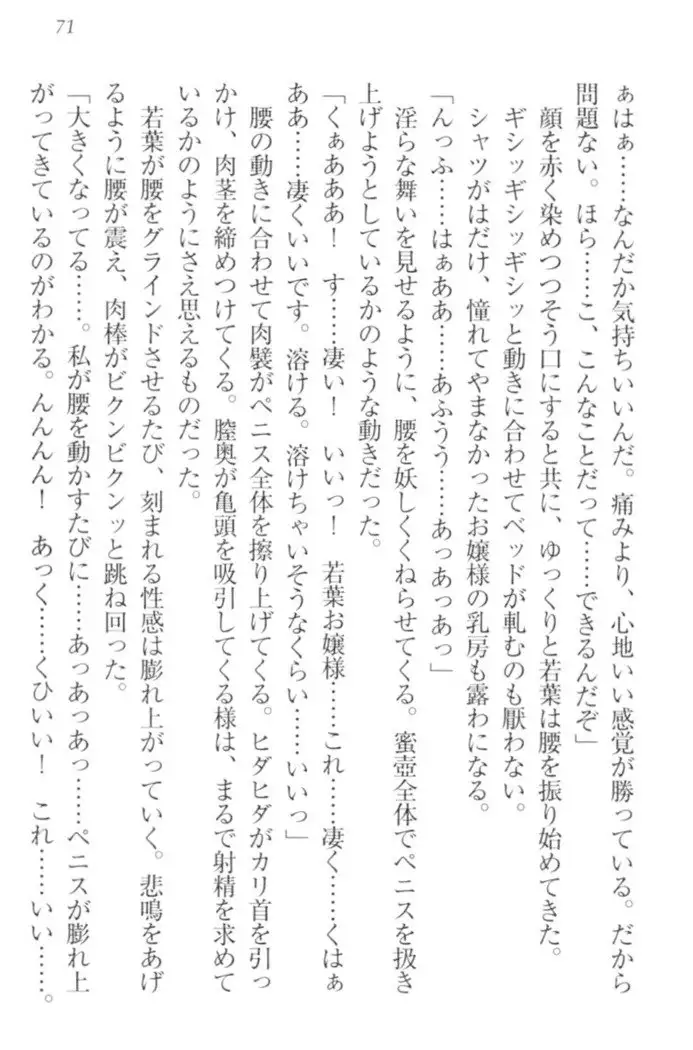 71
ぁはぁ……なんだか気持ちいいんだ。痛みより、心地いい感覚が勝っている。だから
問題ない。ほら……こ、こんなことだって……できるんだぞ」
顔を赤く染めつつそう口にすると共に、ゆっくりと若葉は腰を振り始めてきた。
ギシッギシッギシッと動きに合わせてベッドが軋むのも厭わない。
シャツがはだけ、憧れてやまなかったお嬢様の乳房も露わになる。
「んっふ……はぁああ……あふうう……あっあっあっ」
淫らな舞いを見せるように、腰を妖しくくねらせてくる。蜜壺全体でペニスを扱き
上げようとしているかのような動きだった。
「くぁあああ！　す……凄い！　いいっ！　若葉お嬢様……これ……凄く……くはぁ
ああ……凄くいいです。溶ける。溶けちゃいそうなくらい……いいっ」
腰の動きに合わせて肉襞がペニス全体を擦り上げてくる。ヒダヒダがカリ首を引っ
かけ、肉茎を締めつけてくる。膣奥が亀頭を吸引してくる様は、まるで射精を求めて
いるかのようにさえ思えるものだった。
若葉が腰をグラインドさせるたび、刻まれる性感は膨れ上がっていく。悲鳴をあげ
るように腰が震え、肉棒がビクンビクンッと跳ね回った。
「大きくなってる……。私が腰を動かすたびに……あっあっあっ……ペニスが膨れ上
がってきているのがわかる。んんんん！　あっく……くひいい！　これ……いい……。